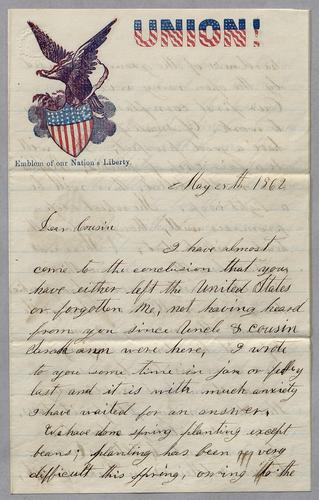 UNION!
Emblem of our Nation's Liberty.
May 1862
Dear Cousin
I have almost
come to the conclusion that you
have either left the United States
or forgotten Me, not having heard
from you since Uncle & cousin
ann were here, I wrote
to you some time in jan or
last and it is with much anxiety
I have waited for an answer,
We have done spring planting except
beans; planting has been very
difficult this spring, owing to the